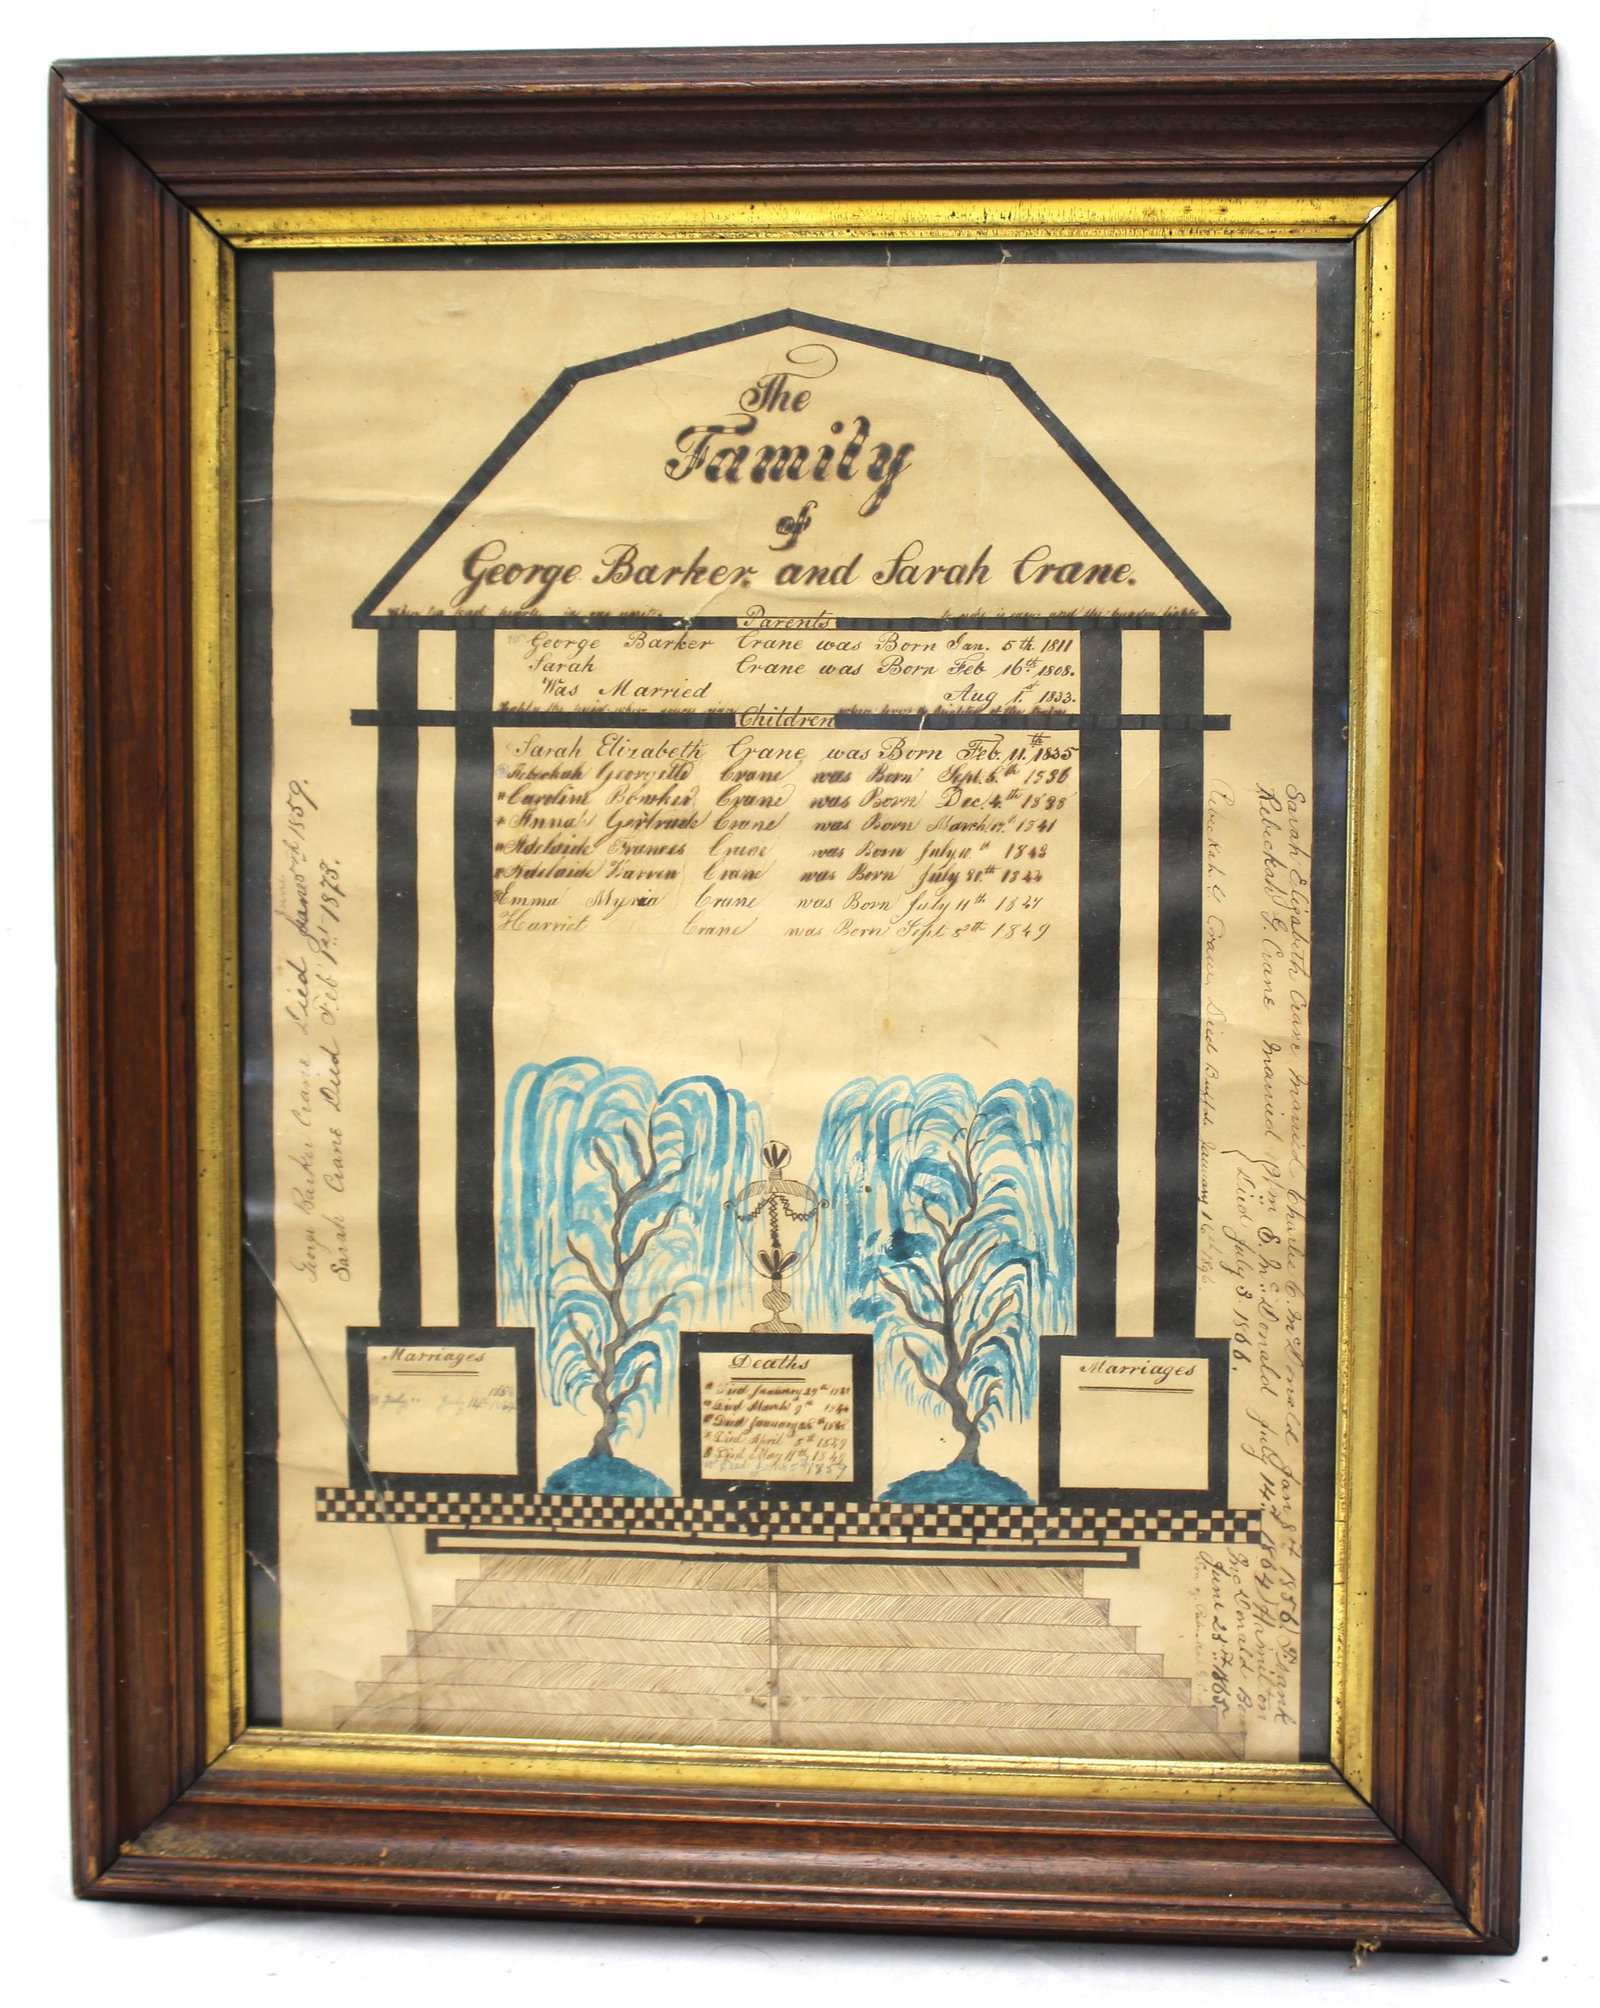 The
Family
of
George Barker and Sarah Crane.
Parents
George Barker Crane was Born Jan. 5th 1811
Sarah Crane was Born Feb 16th 1808.
Was Married Aug 1st 1833.
Children
Sarah Elizabeth Crane was Born Feb. 11th 1835
Rebeckah Georgette Crane was Born Sept. 5th 1836
Caroline Bowker Crane was Born Dec. 4th 1838
Anna Gertrude Crane was Born March 17th 1841
Adelaide Frances Crane was Born July 11th 1843
Adelaide Warren Crane was Born July 30th 1844
Emma Myria Crane was Born July 11th 1847
Harriet Crane was Born Sept 5th 1849
George Barker Crane Died June 5th 1859.
Sarah Crane Died Feb 1st 1873.
Marriages
July 14th 1864
Deaths
Died January 29th
Died March 9th
Died January 28th
Died April 5th 1849
Died May 11th 1849
Died June 5th 1859
Marriages
Sarah Elizabeth Crane Married Charlie C. McDonald Jan 8th 1856 Frank
Rebeckah G. Crane Married Wm S. McDonald July 14th 1864 Hamilton
Died July 3 1866.
McDonald
June 25th 1865
Rebeckah G. Crane Died Buffalo January 16th 1896